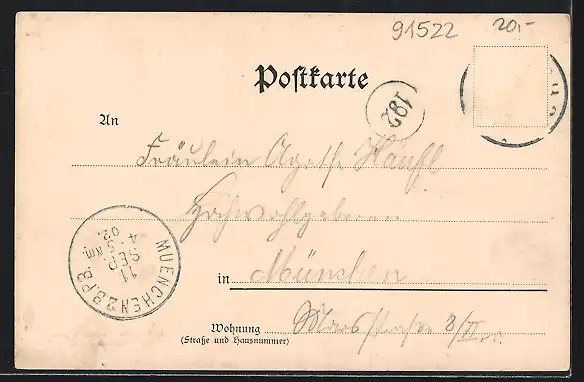 91522 20,-
Postkarte
182
An
Fräulein Agathe
Hochwohlgeboren
in München
Wohnung Marsstrasse 8/II r.
(Straße und Hausnummer)
MUENCHEN 2.B.P.B.
11
SEP.
4-5 Nm.
02.